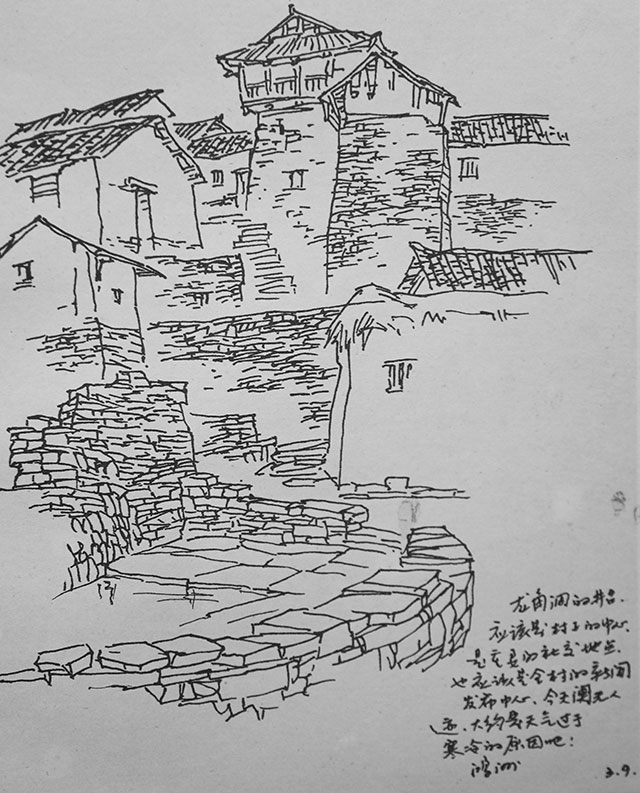 龙角洞的井台.
应该是村子的中心.
是重要的社交地点.
也应该是全村的新闻
发布中心、今天阒无人
迹、大约是天气过于
寒冷的原因吧!
鸿洲
3.9.